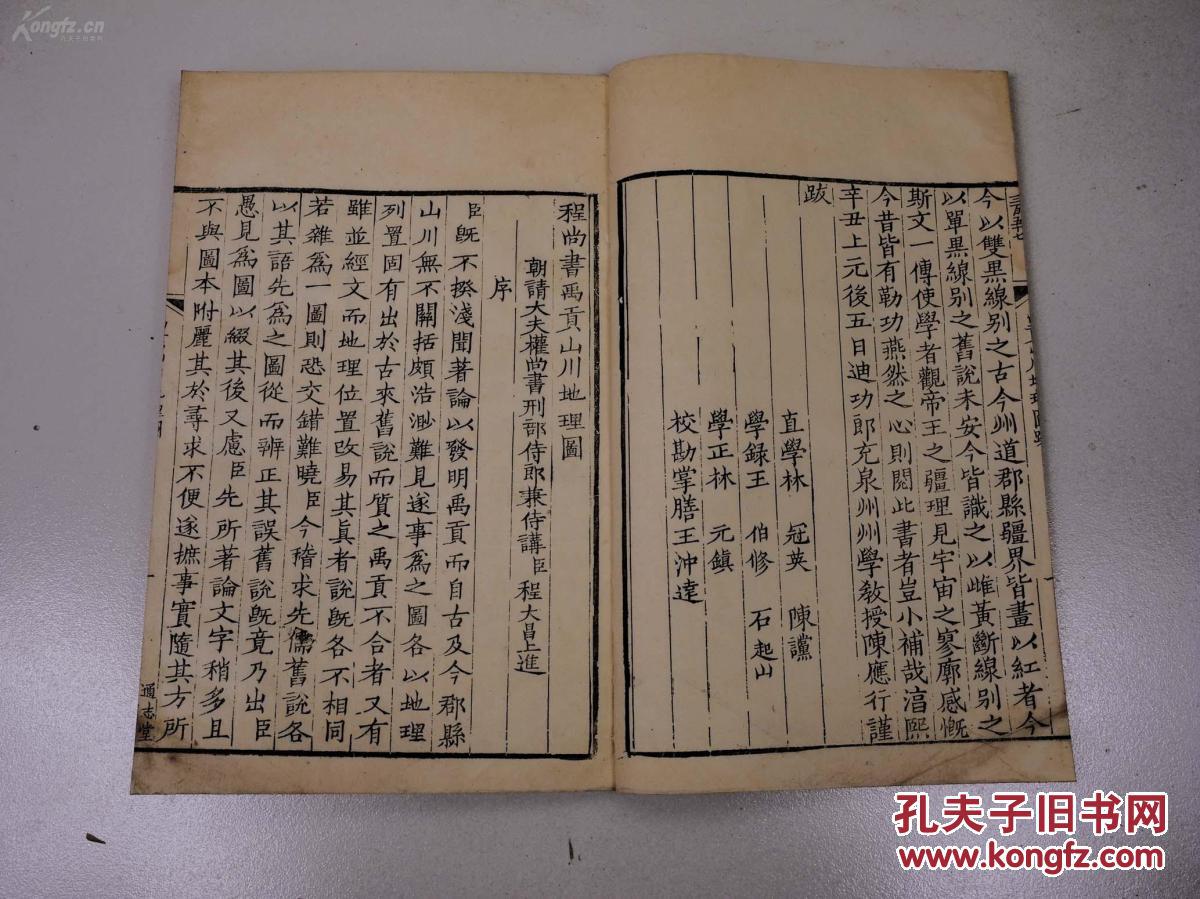 今以雙黑線别之古今州道郡縣疆界皆畫以紅者今
以單黑線别之舊說未安今皆識之以雌黃斷線别之
斯文一傳使學者觀帝王之疆理見宇宙之寥廓感慨
今昔皆有勒功燕然之心則閱此書者豈小補哉淳熙
辛丑上元後五日迪功郎充泉州州學敎授陳應行謹
跋
直學林 冠英 陳讜
學録王 伯修 石起山
學正林 元鎮
校勘掌膳王沖逹
程尚書禹貢山川地理圖
朝請大夫權尚書刑部侍郎兼侍講臣程大昌上進
序
臣旣不揆淺聞著論以發明禹貢而自古及今郡縣
山川無不關括頗浩渺難見遂事爲之圖各以地理
列置固有出於古來舊說而質之禹貢不合者又有
雖並經文而地理位置改易其眞者說旣各不相同
若雜爲一圖則恐交錯難曉臣今稽求先儒舊說各
以其語先爲之圖從而辨正其誤舊說旣竟乃出臣
愚見爲圖以綴其後又慮臣先所著論文字稍多且
不與圖本附麗其於尋求不便遂摭事實隨其方所
通志堂
Kongfz.cn
孔夫子旧书网
孔夫子旧书网
www.kongfz.com